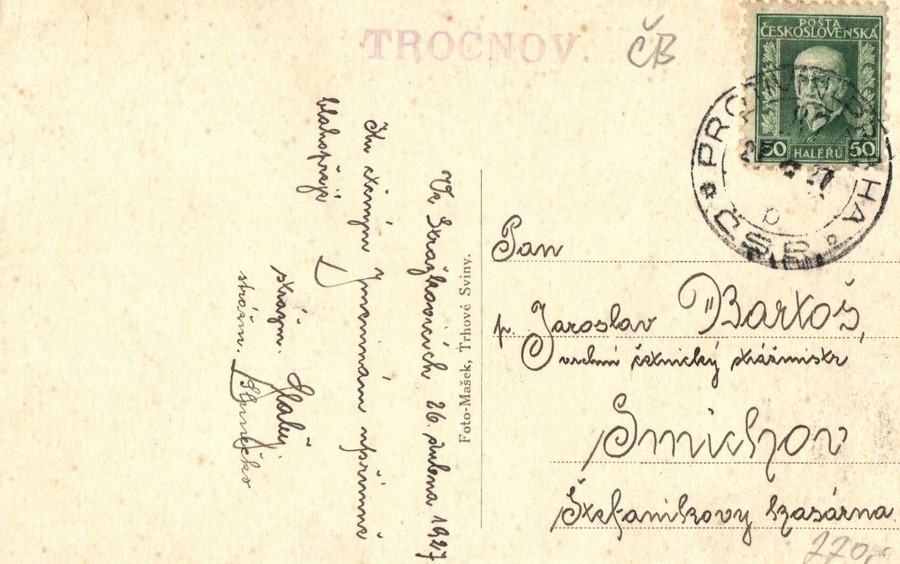 TROCNOV
ČB
POŠTA
ČESKOSLOVENSKÁ
50 HALÉŘŮ 50
ČSR
Ve Strážkovicích 26. dubna 1927
Ku Vašim jmeninám upřímně
blahopřejí
strážm.
strážm.
Foto-Mašek, Trhové Sviny.
Pan
p. Jaroslav Bartoš,
vrchní četnický strážmistr
Smichov
Štefanikovy kasárna.
220,-